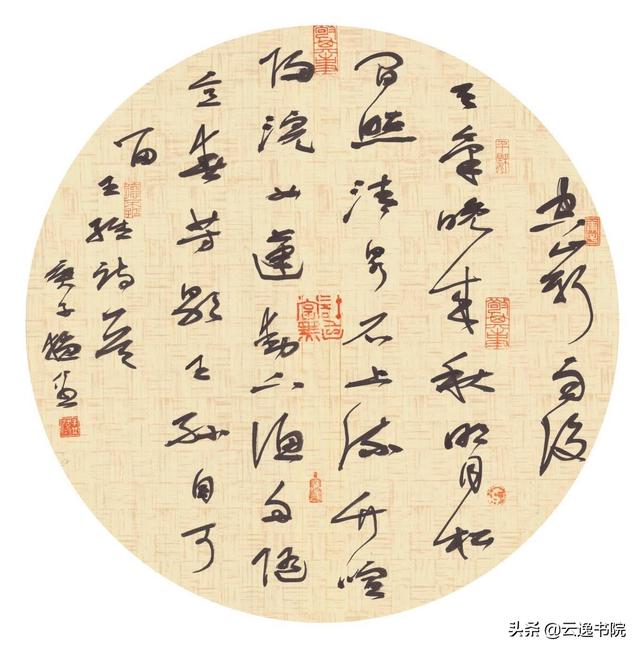 空山新雨後
天氣晚來秋明月松
間照清泉石上流竹喧
歸浣女蓮動下漁舟隨
意春芳歇王孫自可
留
王維詩
庚子
头条 @云逸书院